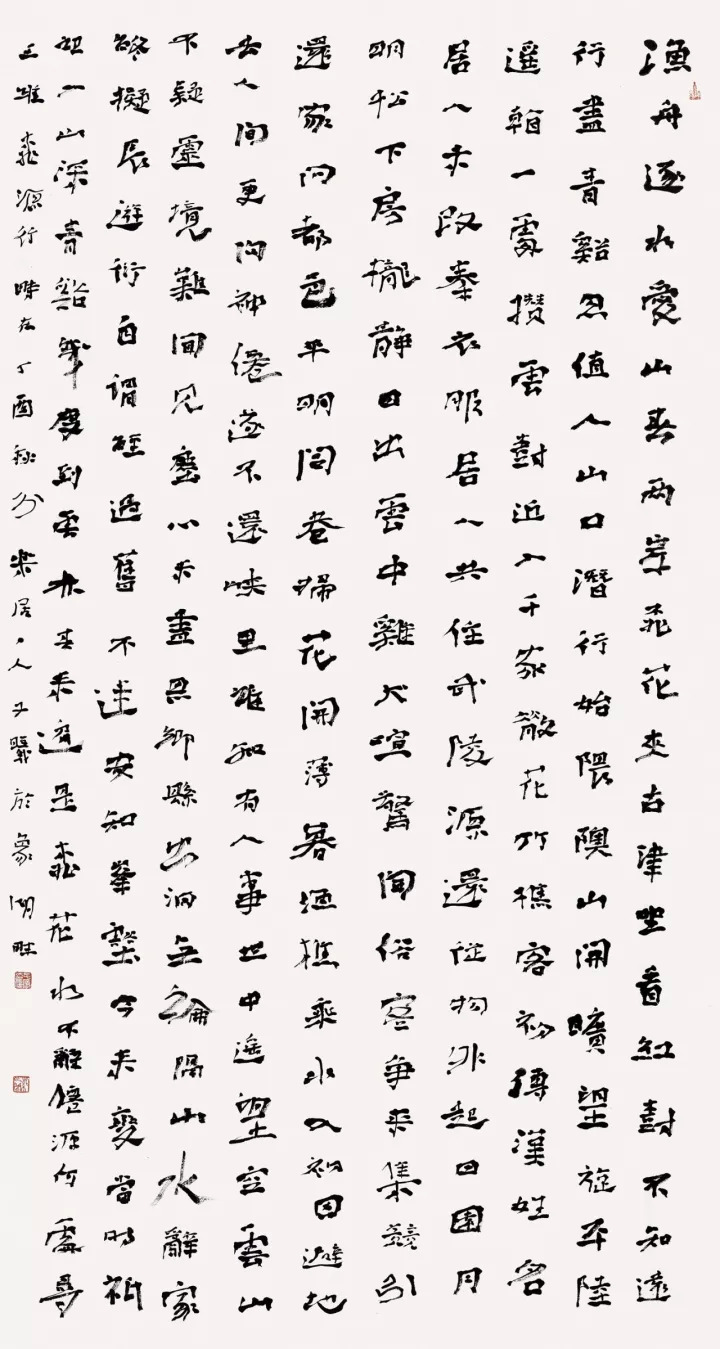 漁舟逐水愛山春兩岸桃花夾古津坐看紅尌不知遠
行盡青谿忽值人山口潛行始隈隩山開曠望旋平陸
遥看一處攢雲尌近入千家散花竹樵客初傳漢姓名
居人未改秦衣服居人共住武陵源還從物外起田園月
明松下房櫳靜日出雲中雞犬喧驚聞俗客爭來集競引
還家問都邑平明閭巷掃花開薄暮漁樵乘水入初因避地
去人間更問神僊遂不還峽里誰知有人事世中遙望空雲山
不疑靈境難聞見塵心未盡思鄉縣出洞無論隔山水辭家
終擬長遊衍自謂經過舊不迷安知峯壑今來變當時祇
記入山深青谿幾度到雲林春來遍是桃花水不辨僊源何處尋
王維桃源行時在丁酉秋分樂居人於象湖畔